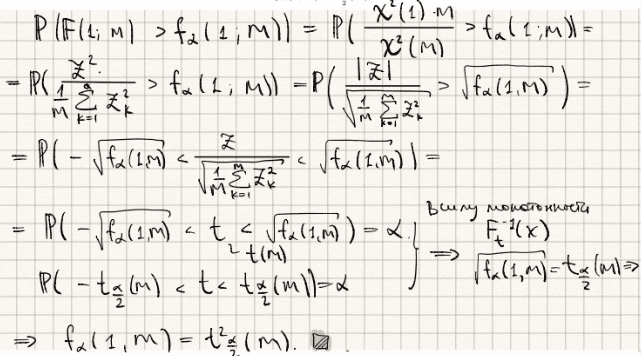 P(F(1; m) > f_α(1; m)) = P( χ²(1)·m / χ²(m) > f_α(1; m)) =
= P( Z² / (1/m ∑_{k=1}^{m} Z_k²) > f_α(1; m)) = P( |Z| / √(1/m ∑_{k=1}^{m} Z_k²) > √f_α(1,m) ) =
= P( -√f_α(1,m) < Z / √(1/m ∑_{k=1}^{m} Z_k²) < √f_α(1,m) ) =
= P( -√f_α(1,m) < t < √f_α(1,m) ) = α
~ t(m)
P( -t_{α/2}(m) < t < t_{α/2}(m)) = α
В силу монотонности
F_t^{-1}(x)
⇒ √f_α(1,m) = t_{α/2}(m) ⇒
⇒ f_α(1, m) = t²_{α/2}(m).